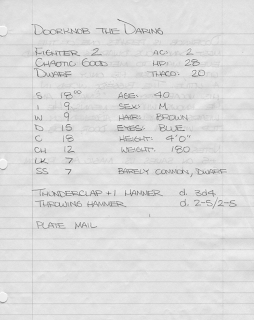 DOORKNOB THE DARING
FIGHTER 2 AC: 2
CHAOTIC GOOD HP: 28
DWARF THACO: 20
S 18⁰⁰ AGE: 40
I 9 SEX: M
W 9 HAIR: BROWN
D 15 EYES: BLUE
C 18 HEIGHT: 4'0"
CH 12 WEIGHT: 180
LK 7
SS 7 BARELY COMMON, DWARF
THUNDERCLAP +1 HAMMER d. 3d4
THROWING HAMMER d. 2-5/2-5
PLATE MAIL